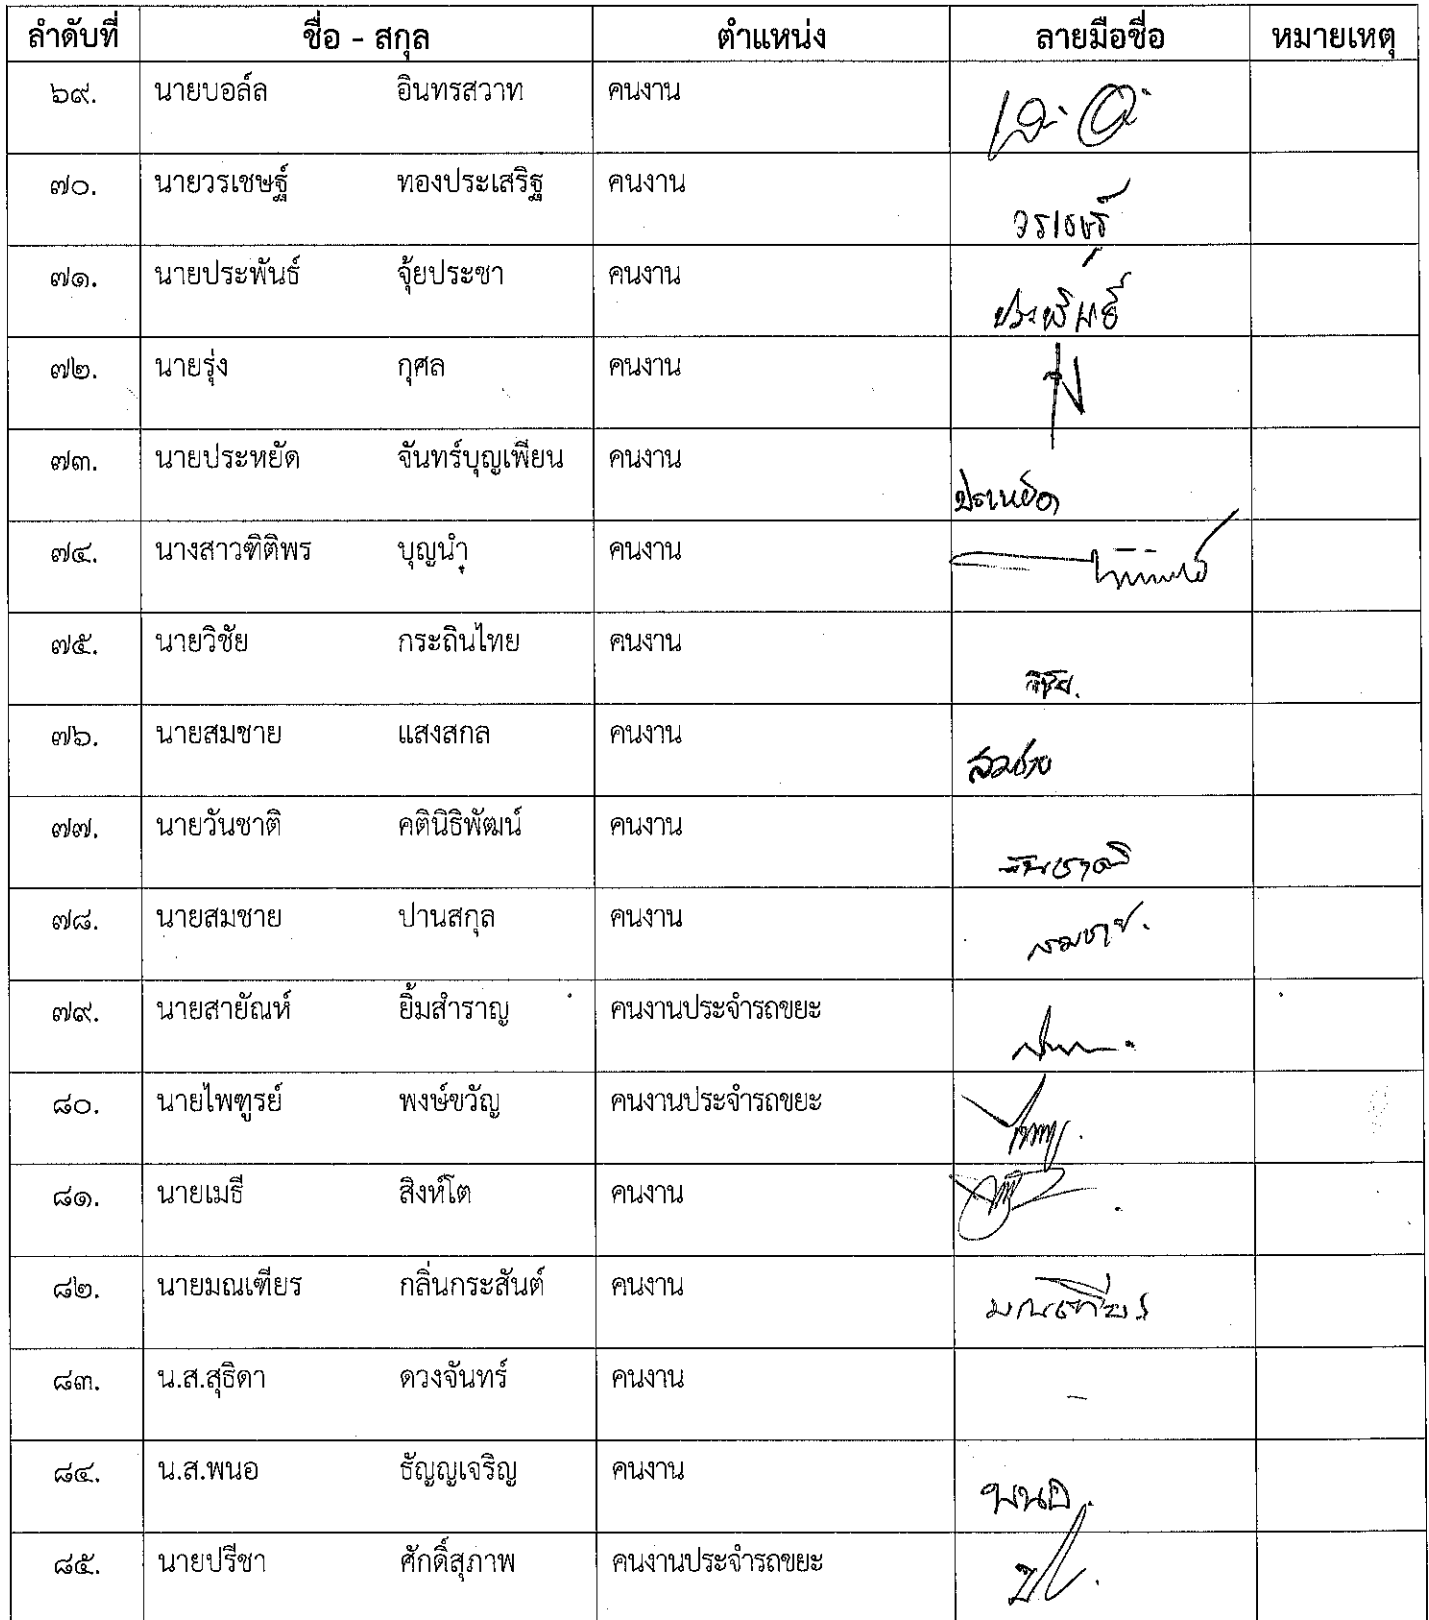 ลำดับที่ ชื่อ - สกุล ตำแหน่ง ลายมือชื่อ หมายเหตุ
๖๙. นายบอล์ล อินทรสวาท คนงาน
๗๐. นายวรเชษฐ์ ทองประเสริฐ คนงาน วรเชษฐ์
๗๑. นายประพันธ์ จุ้ยประชา คนงาน ประพันธ์
๗๒. นายรุ่ง กุศล คนงาน
๗๓. นายประหยัด จันทร์บุญเพียน คนงาน ประหยัด
๗๔. นางสาวฑิติพร บุญนำ คนงาน
๗๕. นายวิชัย กระถินไทย คนงาน วิชัย.
๗๖. นายสมชาย แสงสกล คนงาน สมชาย
๗๗. นายวันชาติ คตินิธิพัฒน์ คนงาน วันชาติ
๗๘. นายสมชาย ปานสกุล คนงาน สมชาย.
๗๙. นายสายัณห์ ยิ้มสำราญ คนงานประจำรถขยะ
๘๐. นายไพฑูรย์ พงษ์ขวัญ คนงานประจำรถขยะ
๘๑. นายเมธี สิงห์โต คนงาน
๘๒. นายมณเฑียร กลิ่นกระสันต์ คนงาน มณเฑียร
๘๓. น.ส.สุธิดา ดวงจันทร์ คนงาน -
๘๔. น.ส.พนอ ธัญญเจริญ คนงาน พนอ.
๘๕. นายปรีชา ศักดิ์สุภาพ คนงานประจำรถขยะ